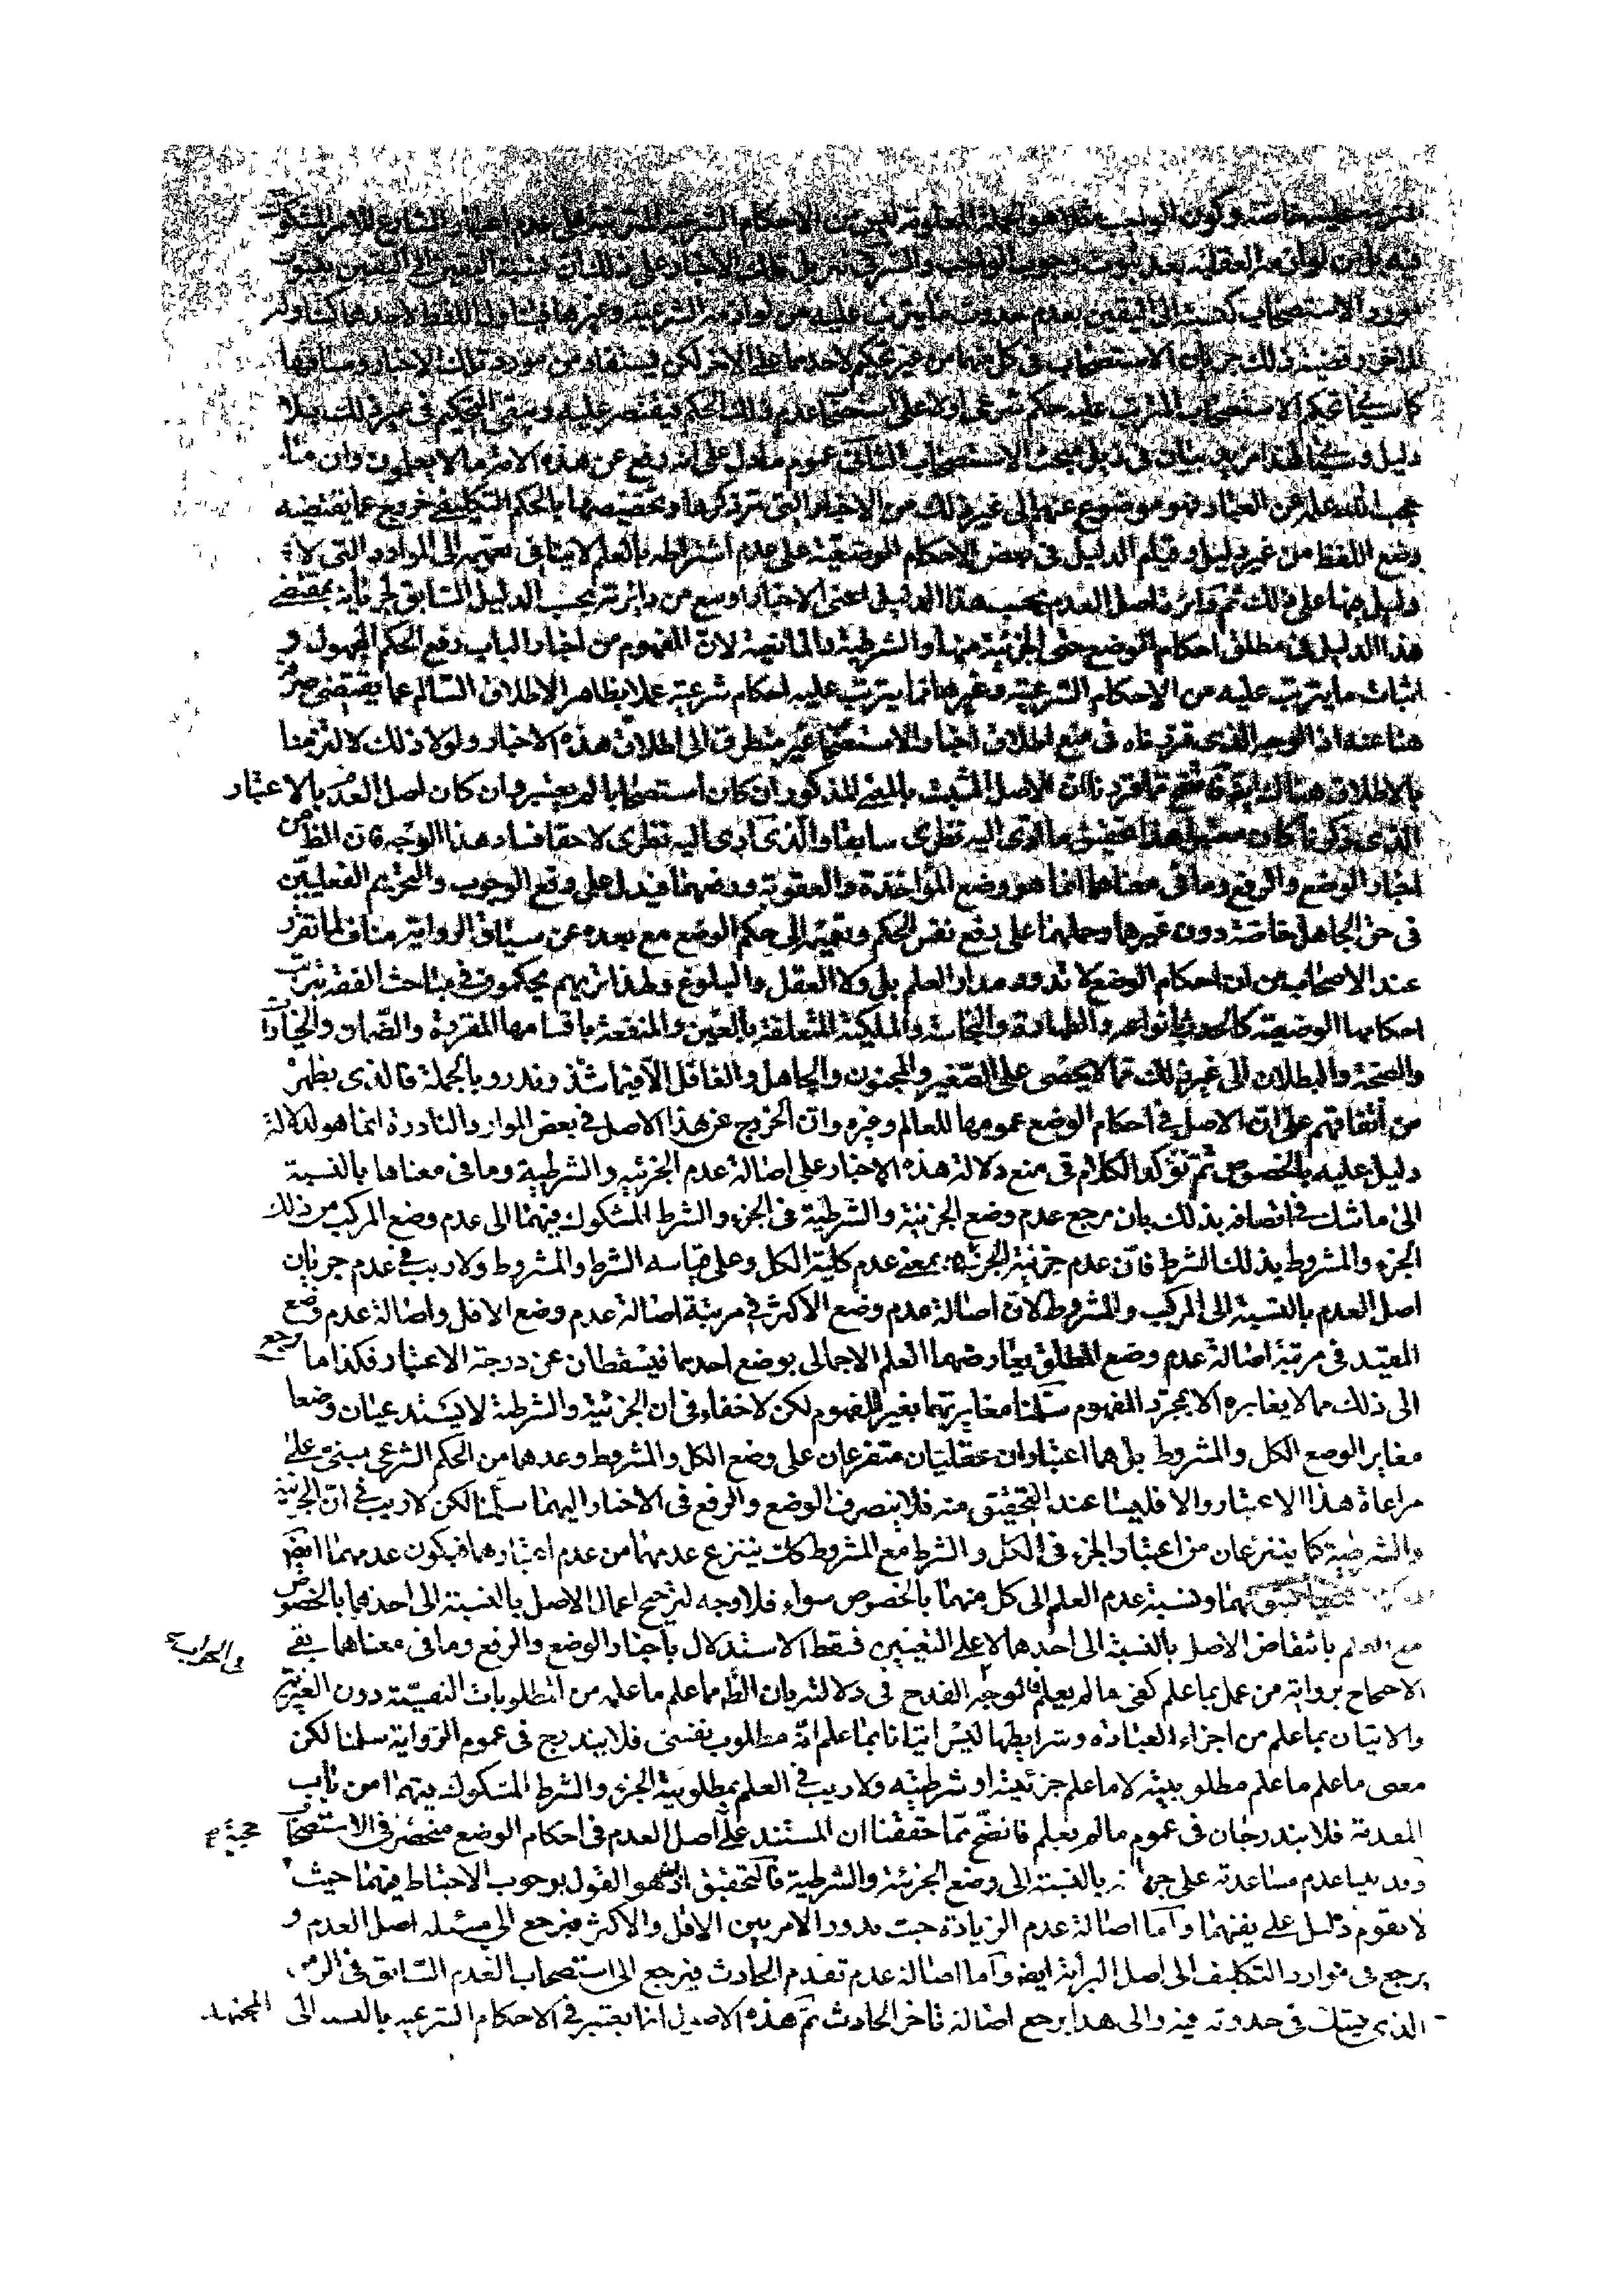 المترتب عليه خاصة وكون الواجب مثلا هو الجملة المعلومة ليس من الاحكام الشرعية المترتبة على عدم اعتبار الشارع للامر المشكوك
فيه بل من لوازمه العقلية بعد ثبوت وجوب الواجب والسر في تنزيل تلك الاخبار على ذلك ان نسبة اليقين الى اليقين بثبوت
مورد الاستصحاب كنسبته الى اليقين بعدم حدوث ما يترتب عليه من لوازمه الشرعية وغيرها فيتناول اللفظ لاحدهما كتناوله
للاخر وقضية ذلك جريان الاستصحاب في كل منهما من غير تحكيم لاحدهما على الاخر لكن يستفاد من مورد تلك الاخبار ومساقها
كما سيجئ تحكيم الاستصحاب المترتب عليه حكم شرعي اولا على استصحاب عدم ذلك الحكم فيقتصر عليه ويبقى التحكيم في غير ذلك بلا
دليل وسيجئ لهذا مزيد بيان في ذيل مبحث الاستصحاب الثاني عموم ما دل على انه رفع عن هذه الامة ما لا يعلمون وان ما
حجب الله علمه عن العباد فهو موضوع عنهم الى غير ذلك من الاخبار التي مر ذكرها وتخصيصها بالحكم التكليفي خروج عما يقتضيه
وضع اللفظ من غير دليل وقيام الدليل في بعض الاحكام الوضعية على عدم اشتراطه بالعلم لا ينافي تعميمه الى الموارد التي لا
دليل فيها على ذلك ثم دائرة اصل العدم بحسب هذا الدليل اعني الاخبار اوسع من دائرته بحسب الدليل السابق لجريانه بمقتضى
هذا الدليل في مطلق احكام الوضع حتى الجزئية منها والشرطية والمانعية لان المفهوم من اخبار الباب رفع الحكم المجهول و
اثبات ما يترتب عليه من الاحكام الشرعية وغيرها مما يترتب عليه احكام شرعية عملا بظاهر الاطلاق السالم عما يقتضي صرفه
هنا عنه اذ الوجه الذي قررناه في منع اطلاق اخبار الاستصحاب غير متطرق الى اطلاق هذه الاخبار ولولا ذلك لالتزمنا
بالاطلاق هناك ايضا فاتضح مما قررنا ان الاصل المثبت بالمعنى المذكور ان كان استصحابا لم يعتبر وان كان اصل العدم بالاعتبار
الذي ذكرنا كان معتبرا هذا تحقيق ما ادى اليه نظري سابقا والذي ادى اليه نظري لاحقا فساد هذا الوجه فان الظ من
اخبار الوضع والرفع وما في معناهما انما هو وضع المؤاخذة والعقوبة ورفعهما فيدل على رفع الوجوب والتحريم الفعليين
في حق الجاهل خاصة دون غيرهما وحملهما على رفع نفس الحكم وتعميمه الى حكم الوضع مع بعده عن سياق الرواية مناف لما تقرر
عند الاصحاب من ان احكام الوضع لا تدور مدار العلم بل ولا العقل والبلوغ ولهذا تريهم يحكمون في مباحث الفقه بترتب
احكامها الوضعية كالحدث بانواعه والطهارة والنجاسة والملكية المتعلقة بالعين والمنفعة باقسامها المقررة والضمان والخيارات
والصحة والبطلان الى غير ذلك مما لا يحصى على الصغير والمجنون والجاهل والغافل الا فيما شذ وندر وبالجملة فالذي يظهر
من اتفاقهم على ان الاصل في احكام الوضع عمومها للعالم وغيره وان الخروج عن هذا الاصل في بعض الموارد النادرة انما هو لدلالة
دليل عليه بالخصوص ثم نؤكد الكلام في منع دلالة هذه الاخبار على اصالة عدم الجزئية والشرطية وما في معناها بالنسبة
الى ما شك في اتصافه بذلك بان مرجع عدم وضع الجزئية والشرطية في الجزء والشرط المشكوك فيهما الى عدم وضع المركب من ذلك
الجزء والمشروط بذلك الشرط فان عدم جزئية الجزء بمعنى عدم كلية الكل وعلى قياسه الشرط والمشروط ولا ريب في عدم جريان
اصل العدم بالنسبة الى المركب والمشروط لان اصالة عدم وضع الاكثر في مرتبة اصالة عدم وضع الاقل واصالة عدم وضع
المقيد في مرتبة اصالة عدم وضع المطلق يعارضهما العلم الاجمالي بوضع احدهما فيسقطان عن درجة الاعتبار فكذا ما رجع
الى ذلك مما لا يغايره الا بمجرد المفهوم سلمنا مغايرتهما بغير المفهوم لكن لا خفاء في ان الجزئية والشرطية لا يستدعيان وضعا
مغاير الوضع الكل والمشروط بل هما اعتباران عقليان متفرعان على وضع الكل والمشروط وعدهما من الحكم الشرعي مبني على
مراعاة هذا الاعتبار والا فليسا عند التحقيق منه فلا ينصرف الوضع والرفع في الاخبار اليهما سلمنا لكن لا ريب في ان الجزئية
والشرطية كما ينتزعان من اعتبار الجزء في الكل والشرط مع المشروط كك ينتزع عدمهما من عدم اعتبارهما فيكون عدمهما ايضا
ونسبة عدم العلم الى كل منهما بالخصوص سواء فلا وجه لترجيح اعمال الاصل بالنسبة الى احدهما بالخصوص
مع العلم بانتقاض الاصل بالنسبة الى احدهما لا على التعيين فسقط الاستدلال باخبار الوضع والرفع وما في معناهما بقي
الاحتجاج برواية من عمل بما علم كفى ما لم يعلم فالوجه القدح في دلالتها بان الظ مما علم ما علمه من المطلوبات النفسية دون الغيرية
والاتيان بما علم من اجزاء العبادة وشرايطها ليس اتيانا بما علم انه مطلوب نفسي فلا يندرج في عموم الرواية سلمنا لكن
معنى ما علم ما علم مطلوبيته لا ما علم جزئيته او شرطيته ولا ريب في العلم بمطلوبية الجزء والشرط المشكوك فيهما من باب
المقدمة فلا يندرجان في عموم ما لم يعلم فاتضح مما حققنا ان المستند على اصل العدم في احكام الوضع منحصر في الاستصحاب
وقد بينا عدم مساعدته على جريانه بالنسبة الى وضع الجزئية والشرطية فالتحقيق اذن هو القول بوجوب الاحتياط فيهما حيث
لا يقوم دليل على نفيهما واما اصالة عدم الزيادة حيث يدور الامر بين الاقل والاكثر فيرجع الى مسئلة اصل العدم و
يرجع في موارد التكليف الى اصل البرائة ايضا واما اصالة عدم تقدم الحادث فيرجع الى استصحاب العدم السابق في الزمن
الذي يشك في حدوثه فيه والى هذا يرجع اصالة تاخر الحادث ثم هذه الاصول انما يعتبر في الاحكام الشرعية بالنسبة الى المجتهد
حجية